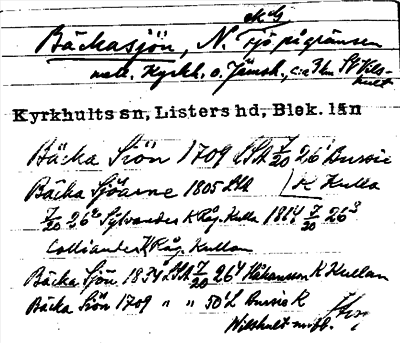 Bäckasjön, N. Sjö på gränsen
mell. Kyrkh. o. Jämsh., c:a 3 km SV Vils-
hult
Kyrkhults sn, Listers hd, Blek. län
Bäcka Siön 1709 LSA 7/20 26¹ Bussie
Bäcka Sjöarne 1805 LSA K Kulla
7/20 26² Sylvander K Råg. Kulla 1814 7/20 26³
Colliander K Råg. Kullan
Bäcka Sjön 1834 LSA 7/20 26⁴ Håkansson K Kullan
Bäcka Siön 1709 " " 50¹ L Bussie R
Wilshult